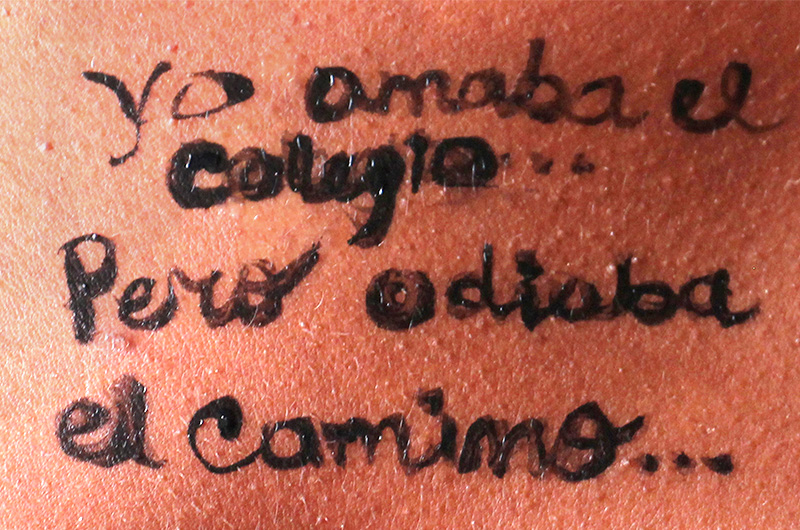 yo amaba el
colegio...
Pero odiaba
el camino...